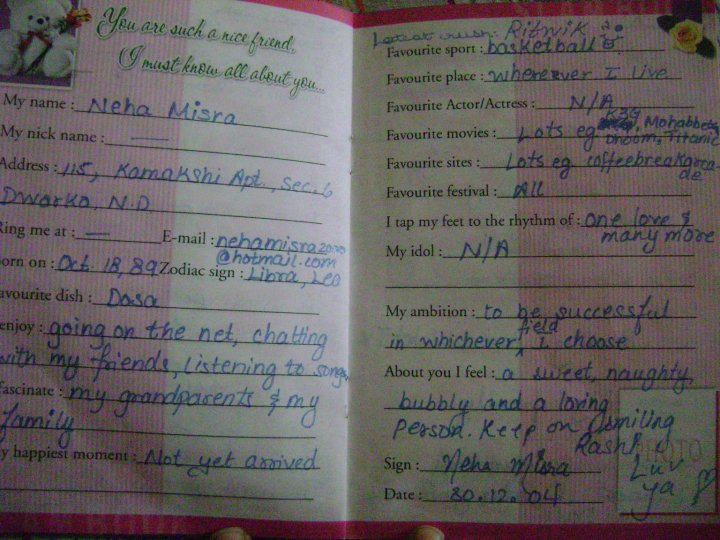 You are such a nice friend,
I must know all about you...
My name : Neha Misra
My nick name : —
Address : 115, Kamakshi Apt., Sec. 6
Dwarka, N.D.
Ring me at : — E-mail : nehamisra2000
@hotmail.com
orn on : Oct. 18, 89 Zodiac sign : Libra, Leo
avourite dish : Dosa
enjoy : going on the net, chatting
with my friends, listening to songs,
fascinate : my grandparents & my
family
y happiest moment : Not yet arrived
Latest crush: Ritwik
Favourite sport : basketball
Favourite place : wherever I live
Favourite Actor/Actress : N/A
Favourite movies : Lots eg K3G, Mohabbetein
Dhoom, Titanic
Favourite sites : Lots eg. coffeebreakarca-
de
Favourite festival : All
I tap my feet to the rhythm of : One love &
many more
My idol : N/A
My ambition : to be successful
in whichever field I choose
About you I feel : a sweet, naughty,
bubbly and a loving
person. Keep on smiling
Rashi
Luv
ya
Sign : Neha Misra
Date : 30.12.04